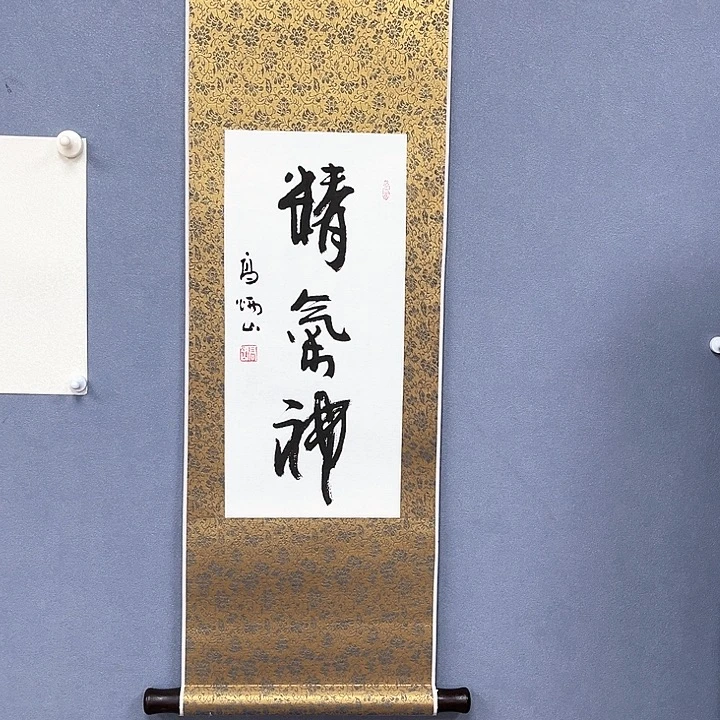 精氣神
高炳山